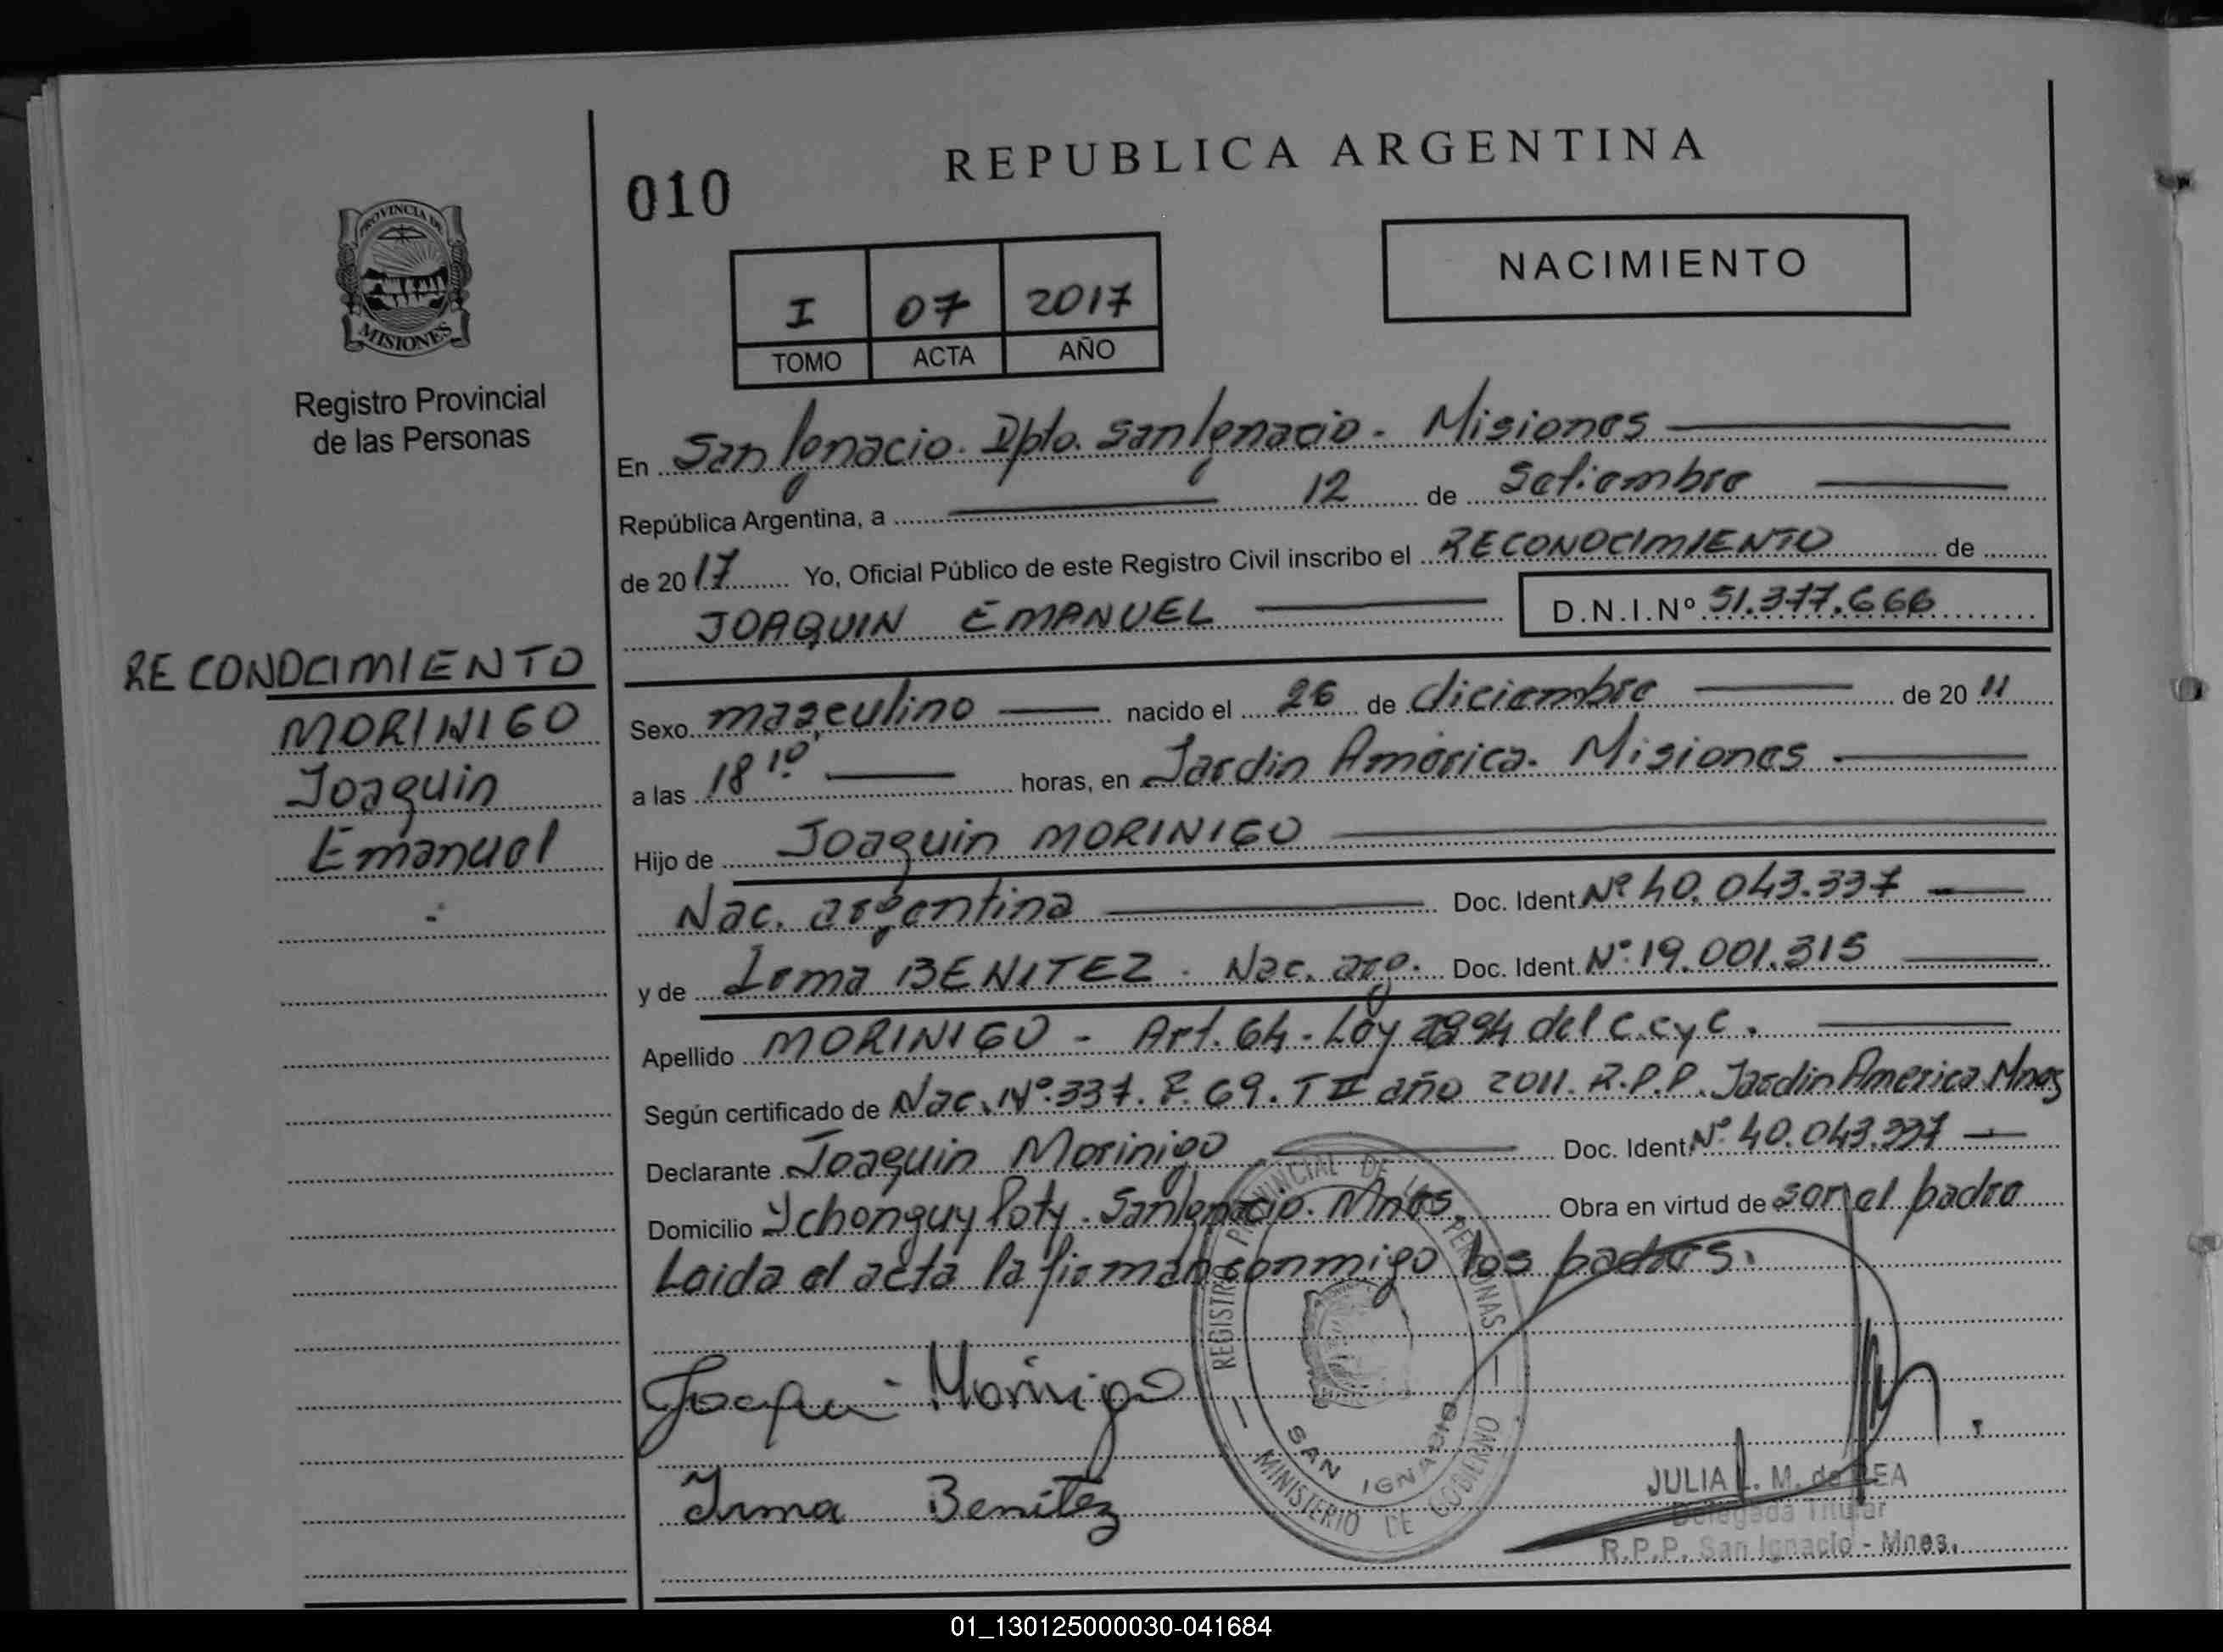 REPUBLICA ARGENTINA
010
NACIMIENTO
PROVINCIA DE
MISIONES
I 07 2017
TOMO ACTA AÑO
Registro Provincial
de las Personas
En San Ignacio. Dpto. San Ignacio - Misiones
República Argentina, a 12 de Setiembre
de 2017 Yo, Oficial Público de este Registro Civil inscribo el RECONOCIMIENTO de
JOAQUIN EMANUEL D.N.I.Nº 51.377.666
RECONOCIMIENTO
MORINIGO
Joaquin
Emanuel
Sexo masculino nacido el 26 de diciembre de 2011
a las 18 10 horas, en Jardin América. Misiones
Hijo de Joaquin MORINIGO
Nac. argentina Doc. Ident. Nº 40.043.337
y de Irma BENITEZ. Nac. arg. Doc. Ident. Nº 19.001.315
Apellido MORINIGO - Art. 64 - Ley del C.C y C.
Según certificado de Nac. Nº 337. F. 69. T II año 2011. R.P.P. Jardin America Mnes
Declarante Joaquin Morinigo Doc. Ident. Nº 40.043.337
Domicilio Ychonguy Poty. San Ignacio. Mnes. Obra en virtud de ser el padre
Leida el acta la firman conmigo los padres.
REGISTRO PROVINCIAL DE LAS PERSONAS
SAN IGNACIO
MINISTERIO DE GOBIERNO
Joaqui Morinigo
Irma Benitez
JULIA M. de
Delegada Titular
R.P.P. San Ignacio - Mnes.
01_130125000030-041684